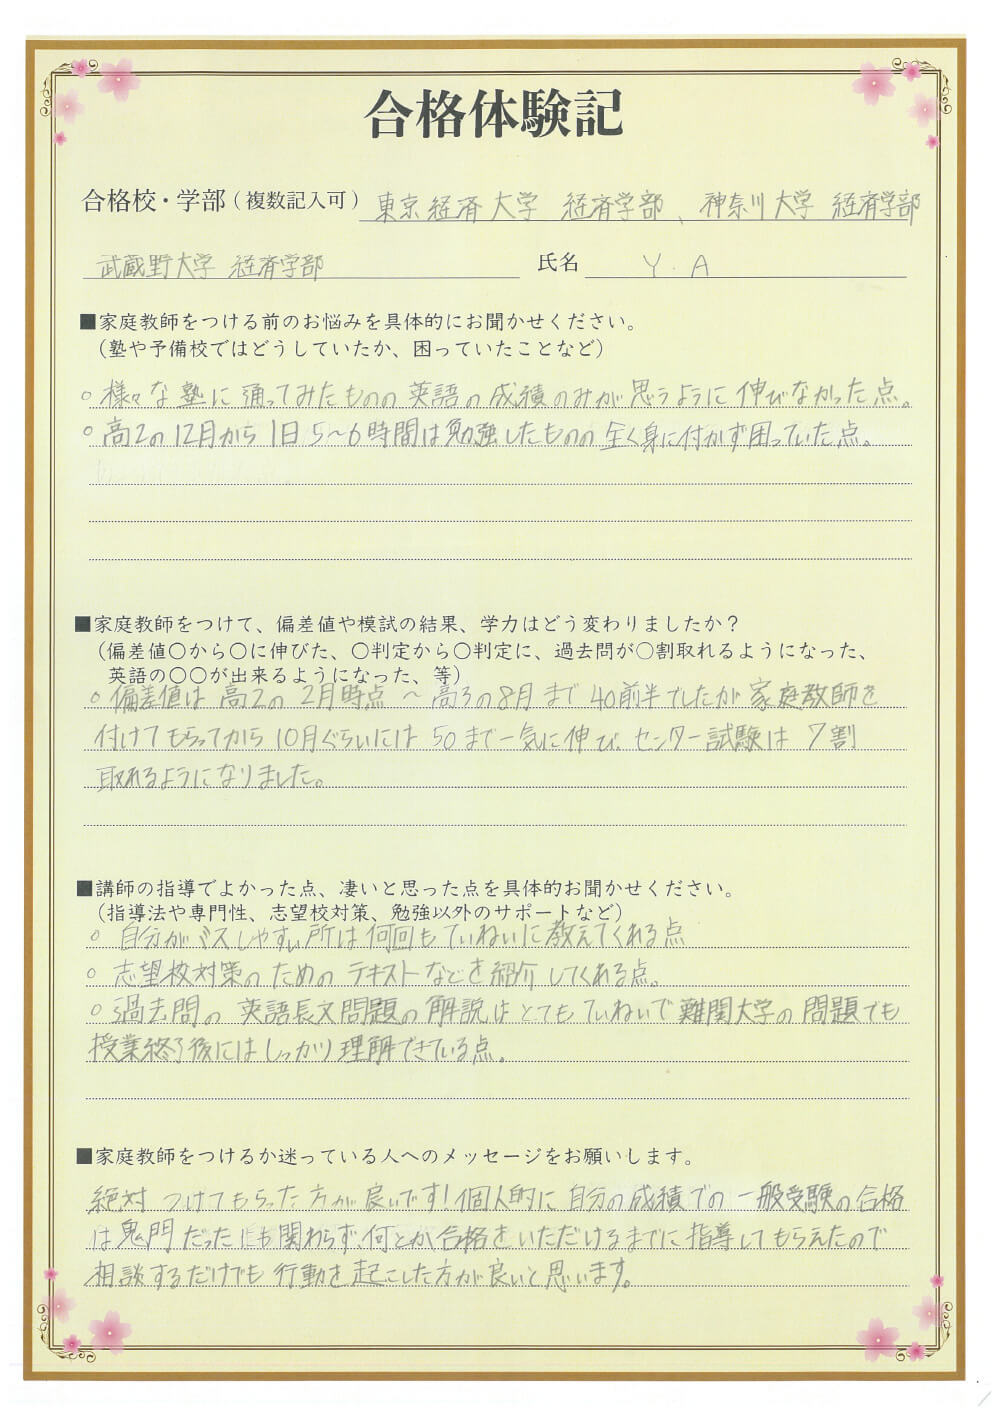 合格体験記
合格校・学部（複数記入可） 東京経済大学 経済学部、神奈川大学 経済学部
武蔵野大学 経済学部 氏名 Y.A
■家庭教師をつける前のお悩みを具体的にお聞かせください。
（塾や予備校ではどうしていたか、困っていたことなど）
○ 様々な塾に通ってみたものの英語の成績のみが思うように伸びなかった点。
○ 高2の12月から1日5〜6時間は勉強したものの全く身に付かず困っていた点。
■家庭教師をつけて、偏差値や模試の結果、学力はどう変わりましたか？
（偏差値〇から〇に伸びた、〇判定から〇判定に、過去問が〇割取れるようになった、
英語の〇〇が出来るようになった、等）
○ 偏差値は高2の2月時点〜高3の8月まで40前半でしたが家庭教師を
付けてもらってから10月ぐらいには50まで一気に伸び、センター試験は7割
取れるようになりました。
■講師の指導でよかった点、凄いと思った点を具体的お聞かせください。
（指導法や専門性、志望校対策、勉強以外のサポートなど）
○ 自分がミスしやすい所は何回もていねいに教えてくれる点
○ 志望校対策のためのテキストなどを紹介してくれる点。
○ 過去問の英語長文問題の解説はとてもていねいで難関大学の問題でも
授業終了後にはしっかり理解できている点。
■家庭教師をつけるか迷っている人へのメッセージをお願いします。
絶対つけてもらった方が良いです！個人的に自分の成績での一般受験の合格
は鬼門だったにも関わらず、何とか合格をいただけるまでに指導してもらえたので
相談するだけでも行動を起こした方が良いと思います。